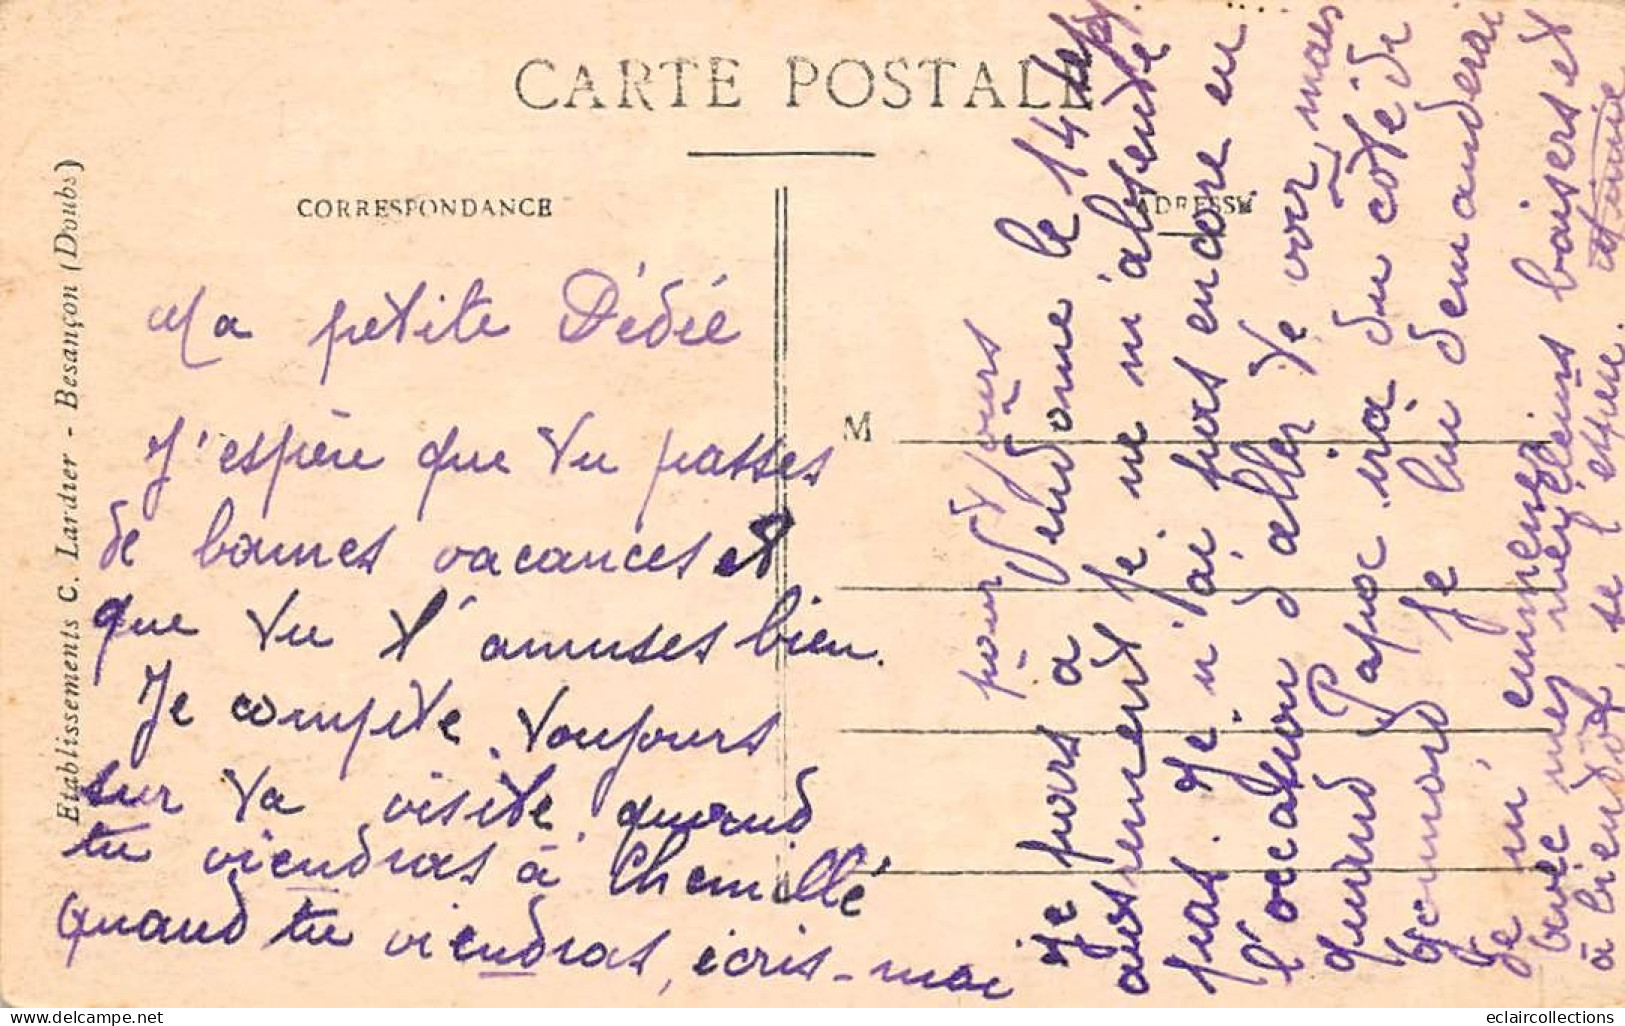 CARTE POSTALE
CORRESPONDANCE
ADRESSE
M
Etablissements C. Lardier - Besançon (Doubs)
Ma petite Dédée
J'espère que tu passes
de bonnes vacances et
que tu t'amuses bien.
Je compte toujours
sur ta visite quand
tu viendras à Chemillé
quand tu viendras, écris-moi
pour toujours
Je pars à Vendôme le 14
autrement je ne m'absente
pas. Je n'ai pas encore eu
l'occation d'aller te voir, mais
quand Papa ira du côté de
je lui demanderai
Je m'
avec mes meilleurs baisers et
à bientôt, je l'espère.
DELCAMPE
eclaircollections